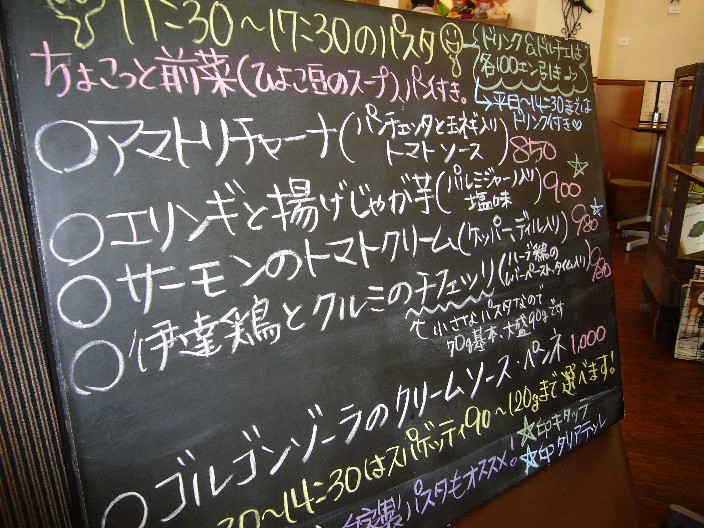 11:30～17:30のパスタ
ドリンク&ドルチェは
各100エン引き♪
→平日～14:30までは
ドリンク付き♡
ちょこっと前菜(ひよこ豆のスープ)、パン付き。
○アマトリチャーナ(パンチェッタと玉ネギ入り
トマトソース)850
○エリンギと揚げじゃが芋(パルミジャーノ入り
塩味)900☆
○サーモンのトマトクリーム(ケッパー、ディル入り)980☆
○伊達鶏とクルミのチフェッリ(ハーブ鶏の
レバーペースト、タイム入り)980
小さなパスタなので
70g基本、大盛90gです
○ゴルゴンゾーラのクリームソース・ペンネ1,000
30～14:30はスパゲッティ90～120gまで選べます!
製パスタもオススメ!
☆印キタッラ
☆印タリアテッレ